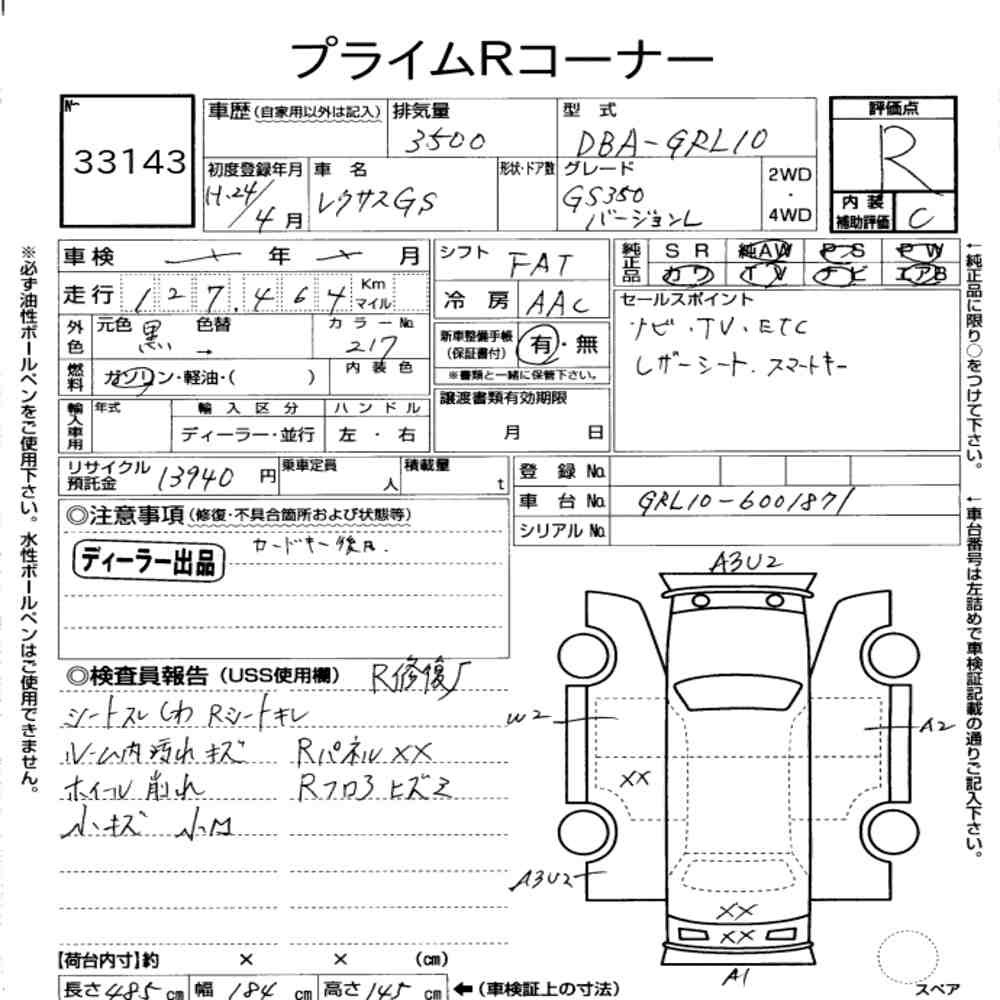 プライムRコーナー
№
33143
車歴(自家用以外は記入)
排気量
3500
型 式
DBA-GRL10
評価点
R
内装
補助評価
C
初度登録年月
H.24/4月
車 名
レクサスGS
形状・ドア数
グレード
GS350
バージョンL
2WD
・
4WD
車検 年 月
走行 127,464 Km
マイル
外色
元色 黒
色替 →
カラー№
217
燃料
ガソリン・軽油・( )
内装色
輸入車用
年式
輸入区分
ディーラー・並行
ハンドル
左・右
シフト FAT
冷房 AAC
新車整備手帳
(保証書付)
有・無
※書類と一緒に保管下さい。
譲渡書類有効期限
月 日
純正品
SR 純AW PS PW
カワ TV ナビ エアB
セールスポイント
ナビ・TV・ETC
レザーシート.スマートキー
リサイクル
預託金
13940円
乗車定員
人
積載量
t
登録№
車台№ GRL10-6001871
シリアル№
◎注意事項(修復・不具合箇所および状態等)
ディーラー出品
カードキー後日.
◎検査員報告(USS使用欄)
R修復歴
シートスレ シワ Rシートキレ
ルーム内汚れ キズ Rパネル XX
ホイール削れ Rフロア ヒズミ
小キズ 小凹
A3U2
W2
A2
XX
A3U2
XX
XX
A1
スペア
【荷台内寸】約 × × (㎝)
長さ485㎝ 幅184㎝ 高さ145㎝ ←(車検証上の寸法)
※必ず油性ボールペンをご使用下さい。水性ボールペンはご使用できません。
←純正品に限り○をつけて下さい。
←車台番号は左詰めで車検証記載の通りご記入下さい。